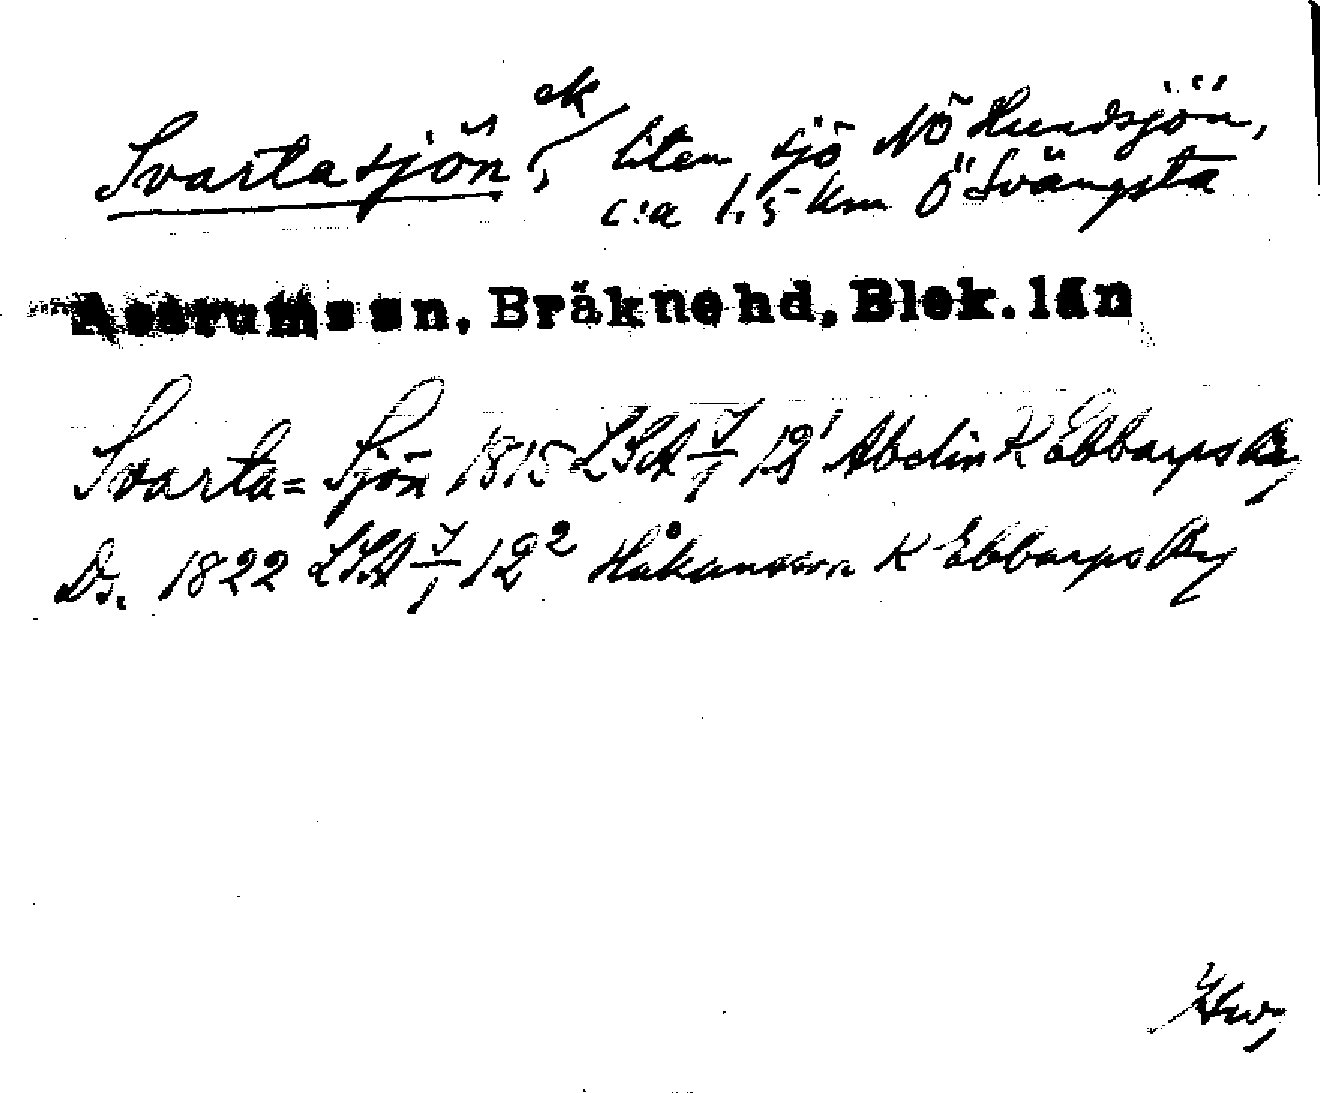 Svartasjön, ek liten sjö NÖ Hundsjön,
c:a 1,5 km Ö Svängsta
Asarums sn, Bräkne hd, Blek. län
Svarta= Sjön 1815 LSA 7/1 12¹ Abelin K Ebbarps By
Ds. 1822 LSA 7/1 12² Håkansson K Ebbarps By